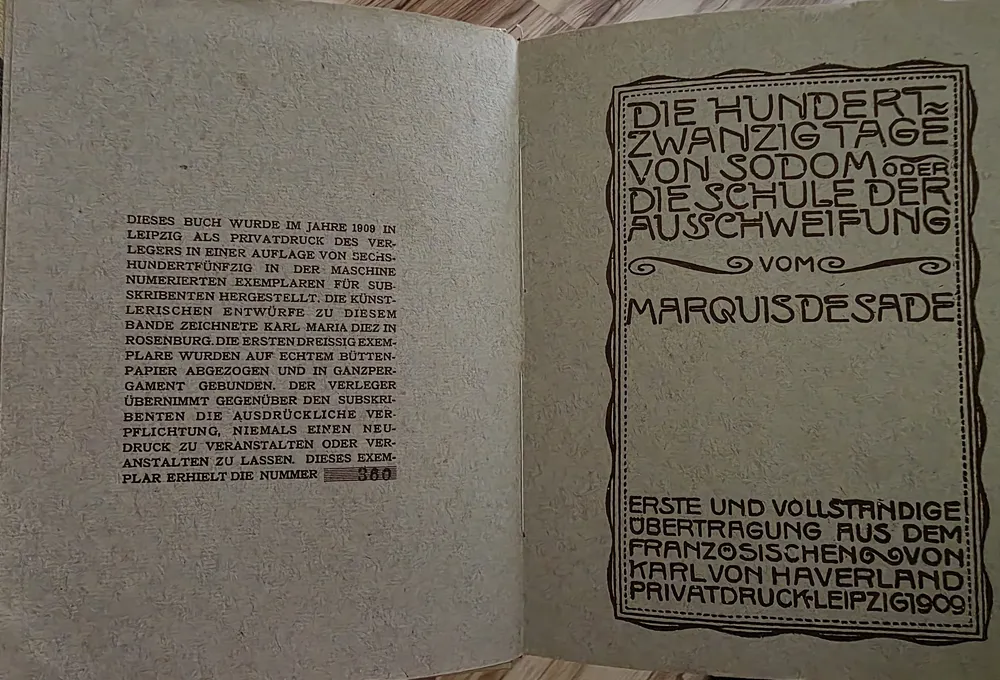 DIESES BUCH WURDE IM JAHRE 1909 IN
LEIPZIG ALS PRIVATDRUCK DES VER-
LEGERS IN EINER AUFLAGE VON SECHS-
HUNDERTFÜNFZIG IN DER MASCHINE
NUMERIERTEN EXEMPLAREN FÜR SUB-
SKRIBENTEN HERGESTELLT. DIE KÜNST-
LERISCHEN ENTWÜRFE ZU DIESEM
BANDE ZEICHNETE KARL MARIA DIEZ IN
ROSENBURG. DIE ERSTEN DREISSIG EXEM-
PLARE WURDEN AUF ECHTEM BÜTTEN-
PAPIER ABGEZOGEN UND IN GANZPER-
GAMENT GEBUNDEN. DER VERLEGER
ÜBERNIMMT GEGENÜBER DEN SUBSKRI-
BENTEN DIE AUSDRÜCKLICHE VER-
PFLICHTUNG, NIEMALS EINEN NEU-
DRUCK ZU VERANSTALTEN ODER VER-
ANSTALTEN ZU LASSEN. DIESES EXEM-
PLAR ERHIELT DIE NUMMER 360
DIE HUNDERT-
ZWANZIG TAGE
VON SODOM ODER
DIE SCHULE DER
AUSSCHWEIFUNG
VOM
MARQUIS DE SADE
ERSTE UND VOLLSTÄNDIGE
ÜBERTRAGUNG AUS DEM
FRANZÖSISCHEN VON
KARL VON HAVERLAND
PRIVATDRUCK-LEIPZIG 1909